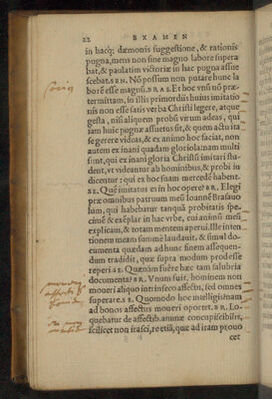 22 EXAMEN
in hacq; dæmonis suggestione, & rationis
pugna, mens non sine magno labore supera
bat, & paulatim victoriæ in hac pugna assue
scebat. SEN. Nō possum non putare hunc la
borē esse magnū. BRAS. Et hoc vnū nō præ-
termittam, in illis primordiis huius imitatio
nis non esse satis verba Christi legere, atque
gesta, nisi aliquem probū virum adeas, qui
iam huic pugnæ assuetus sit, & quem acta ita
se gerere videas, & ex animo hoc faciat, non
autem ex inani quadam gloriola: nam multi
sunt, qui ex inani gloria Christū imitari stu-
dent, vt videantur ab hominibus, & probi in
dicentur: qui ex hoc suam mercedē habent.
SE. Quē imitatus es in hoc opere? BR. Elegi
præ omnibus patruum meū Ioannē Brasauo
lum, qui habebatur tanquā probitatis speci-
mē & exēplar in hac vrbe, cui animū meū
explicaui, & totam mentem aperui. Ille inten
tionem meam summè laudauit, & simul do-
cumenta quædam ad hunc finem assequen-
dum tradidit, quæ supra modum prodesse
reperi. SE. Quænam fuere hæc tam salubria
documenta? BR. Vnum fuit, hominem non
moueri aliquo inferiore affectu, sed omnes
superare. SE. Quomodo hoc intelligis? nam
ad bonos affectus moueri oportet. BR. Lo-
quebatur de affectib. animæ concupiscibilis,
scilicet non irasci, re etiā, quæ ad iram prouo
cet